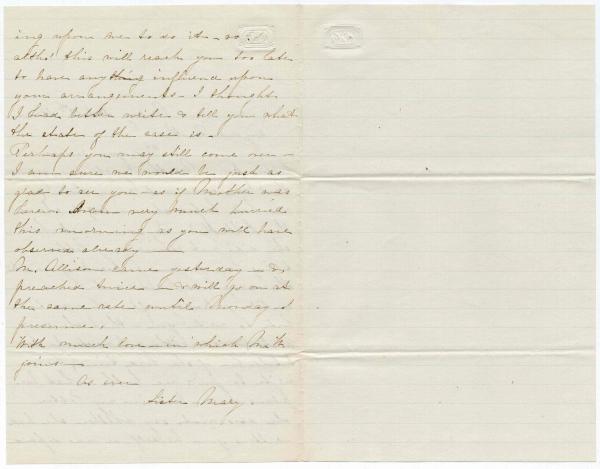 ing upon me to do it - so
altho' this will reach you too late
to have anything influence upon
your arrangements - I thought
I had better write & tell you what
the state of the case is -
Perhaps you may still come over -
I am sure we would be just as
glad to see you - as if Mother was
here. very much hurried
this morning as you will have
observed already -
Mr. Allison came yesterday - &
preached twice - & will go on at
the same rate until Monday I
presume.
With much love - in which
joins -
As ever
Sister Mary